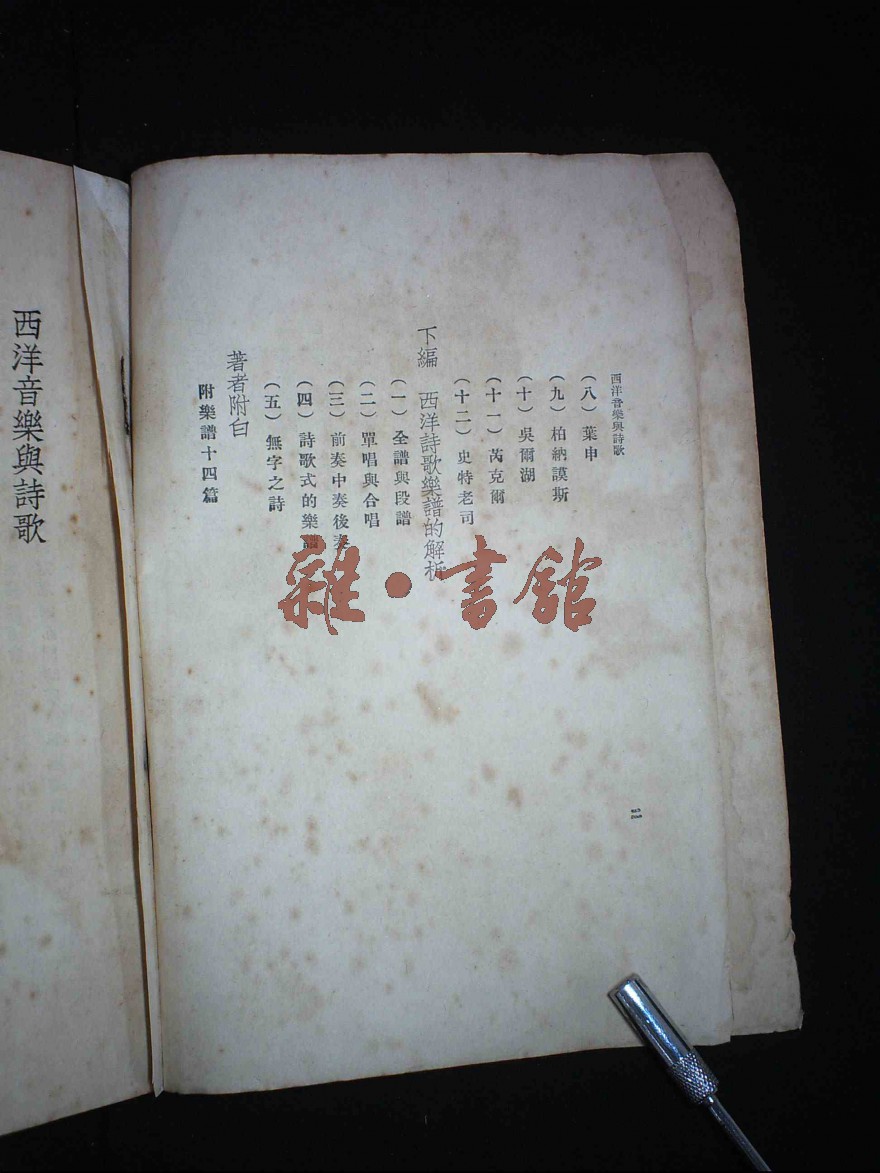 西洋音樂與詩歌
（八）葉申
（九）柏納謨斯
（十）吳爾湖
（十一）芮克爾
（十二）史特老司
下編　西洋詩歌樂譜的解析
（一）全譜與段譜
（二）單唱與合唱
（三）前奏中奏後奏
（四）詩歌式的樂譜
（五）無字之詩
著者附白
附樂譜十四篇
二
西洋音樂與詩歌
雜·書館